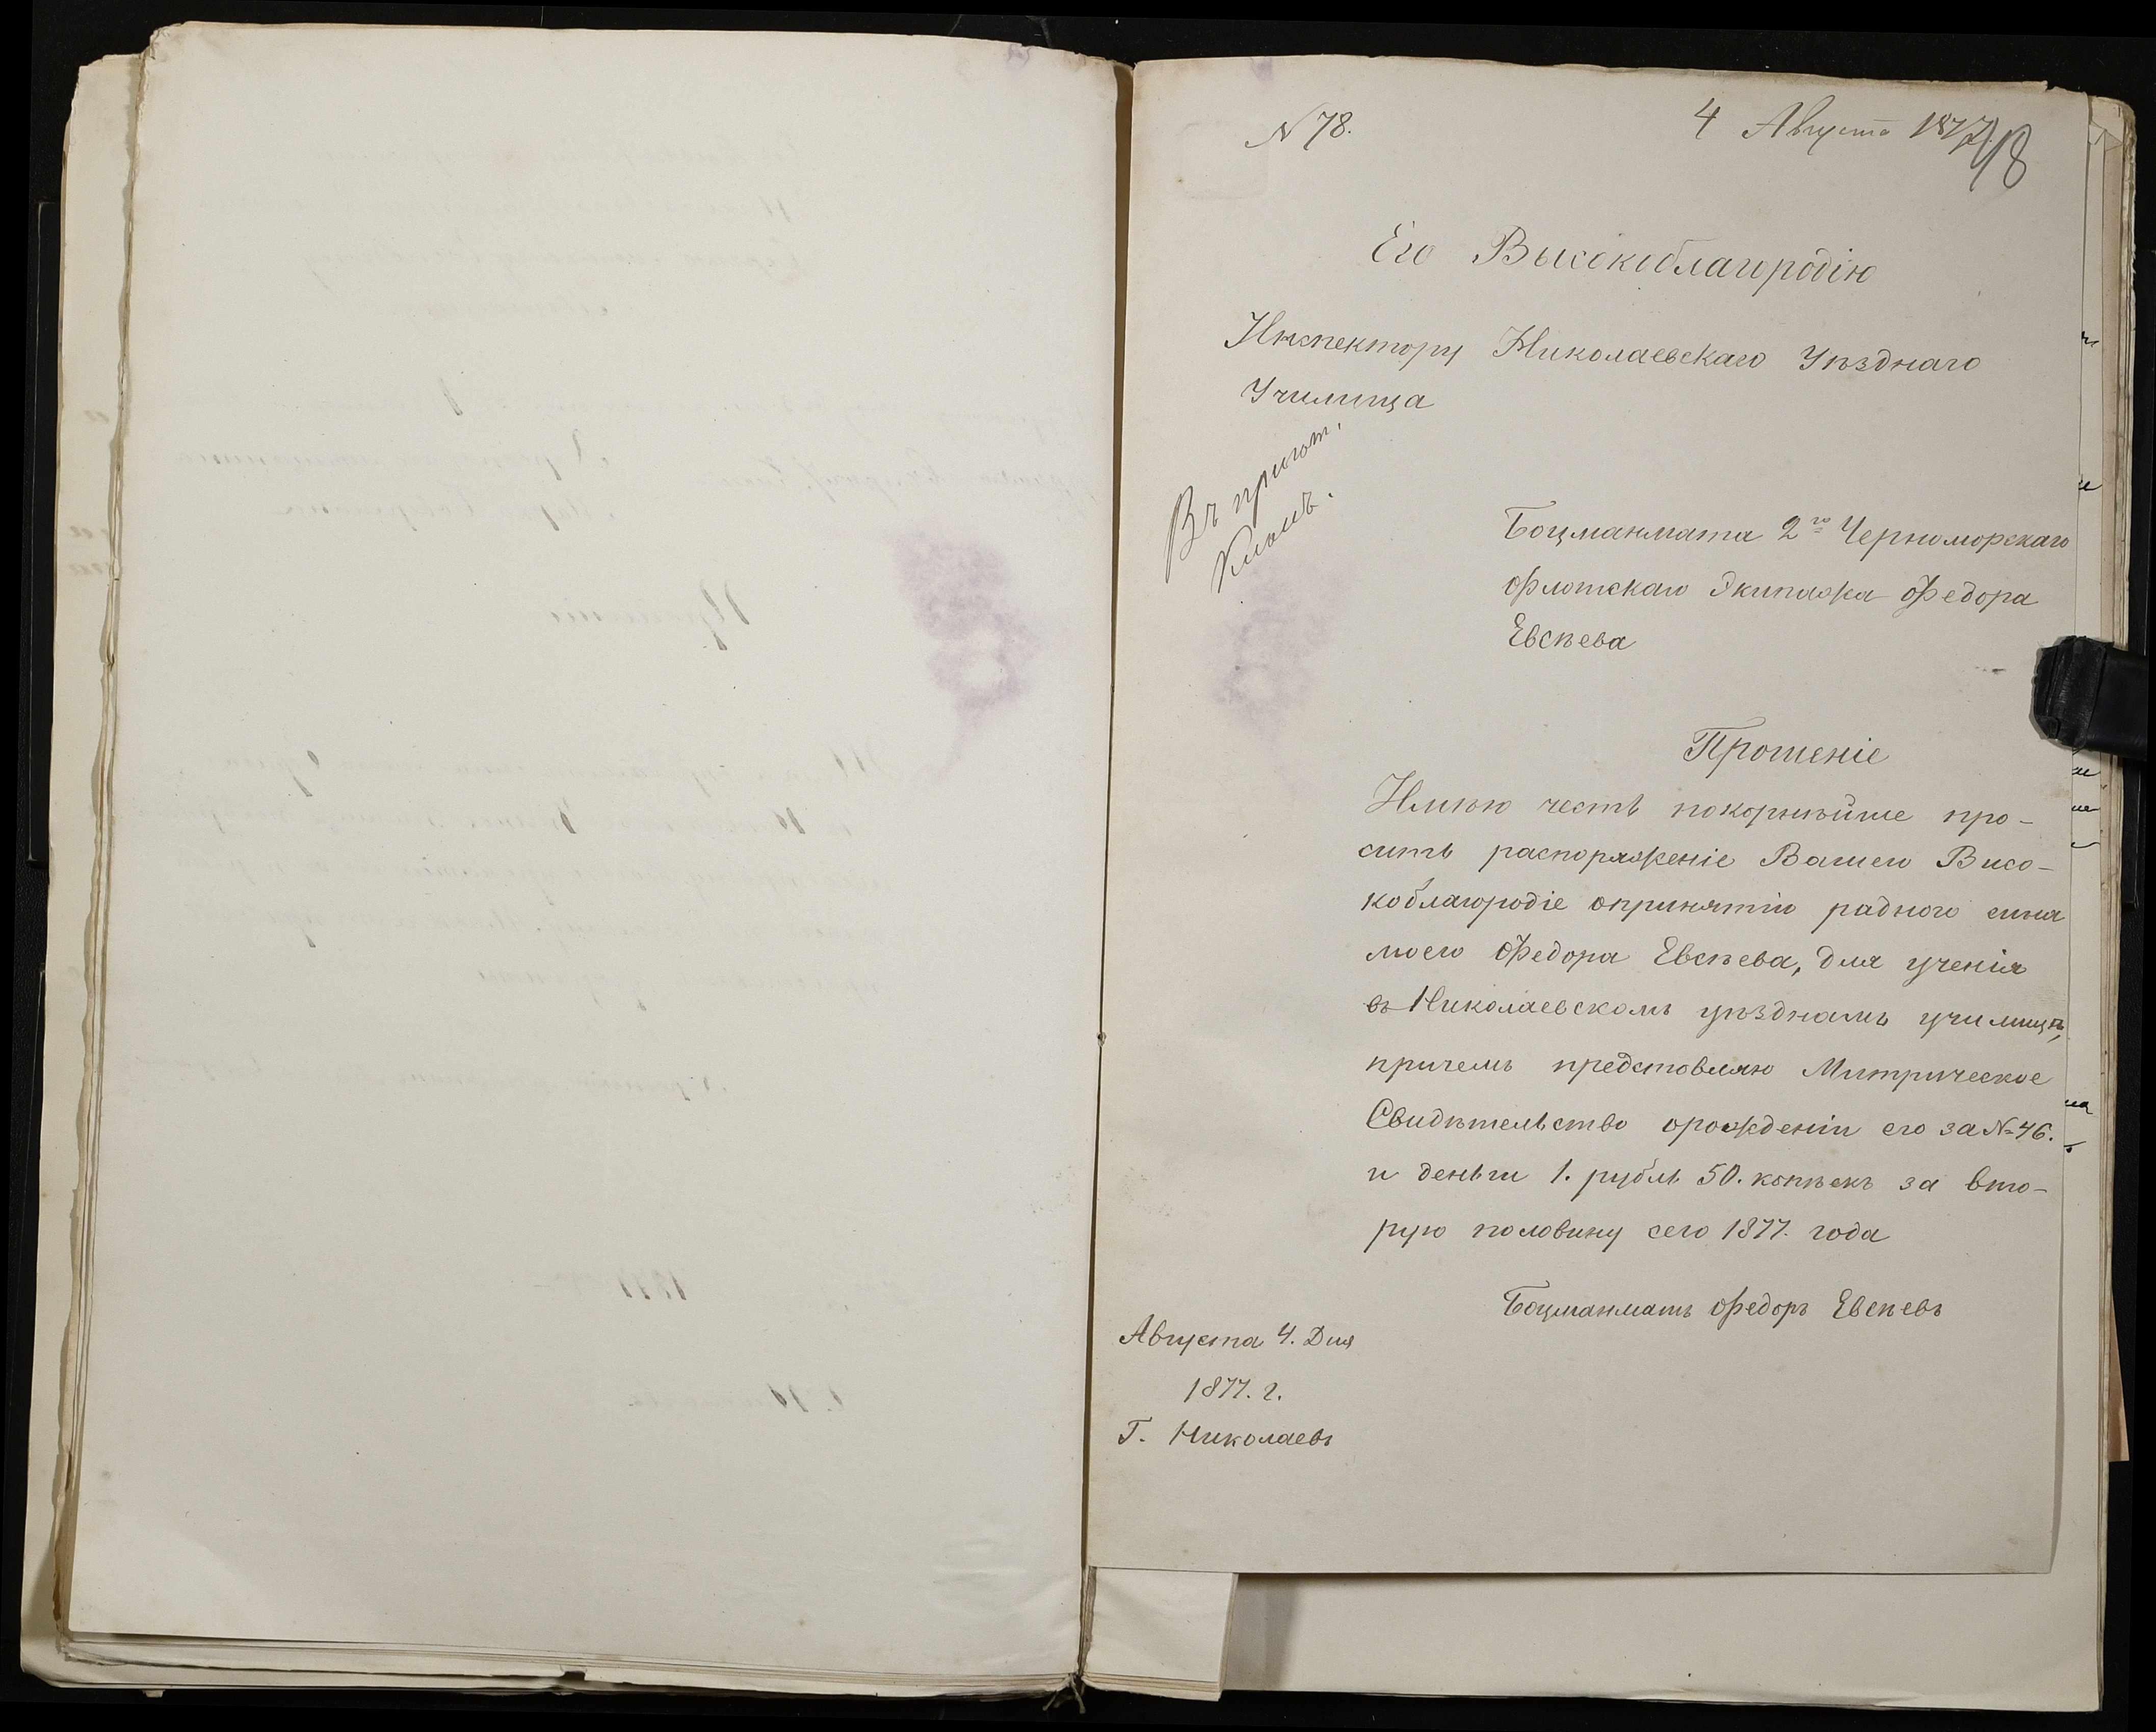 N 78.
4 Августа 1877
98
Его Высокоблагородію
Инспектору Николаевскаго Уѣзднаго
Училища
Въ пригот.
Классъ.
Боцманмата 2го Черноморскаго
Флотскаго Экипажа Федора
Евсѣева
Прошеніе
Имѣю честь покорнѣйше про-
сить распоряженіе Вашего Висо-
коблагородіе опринятіи радного сина
моего Федора Евсѣева, для ученія
въ Николаевскомъ уѣзднамъ училищѣ,
причемъ предстовляю Митрическое
Свидѣтельство орожденіи его за №46.
и деньги 1. рубль 50. копѣекъ за вто-
рую половину сего 1877. года
Боцманматъ Федоръ Евсѣевъ
Августа 4. Дня
1877. г.
Г. Николаевъ